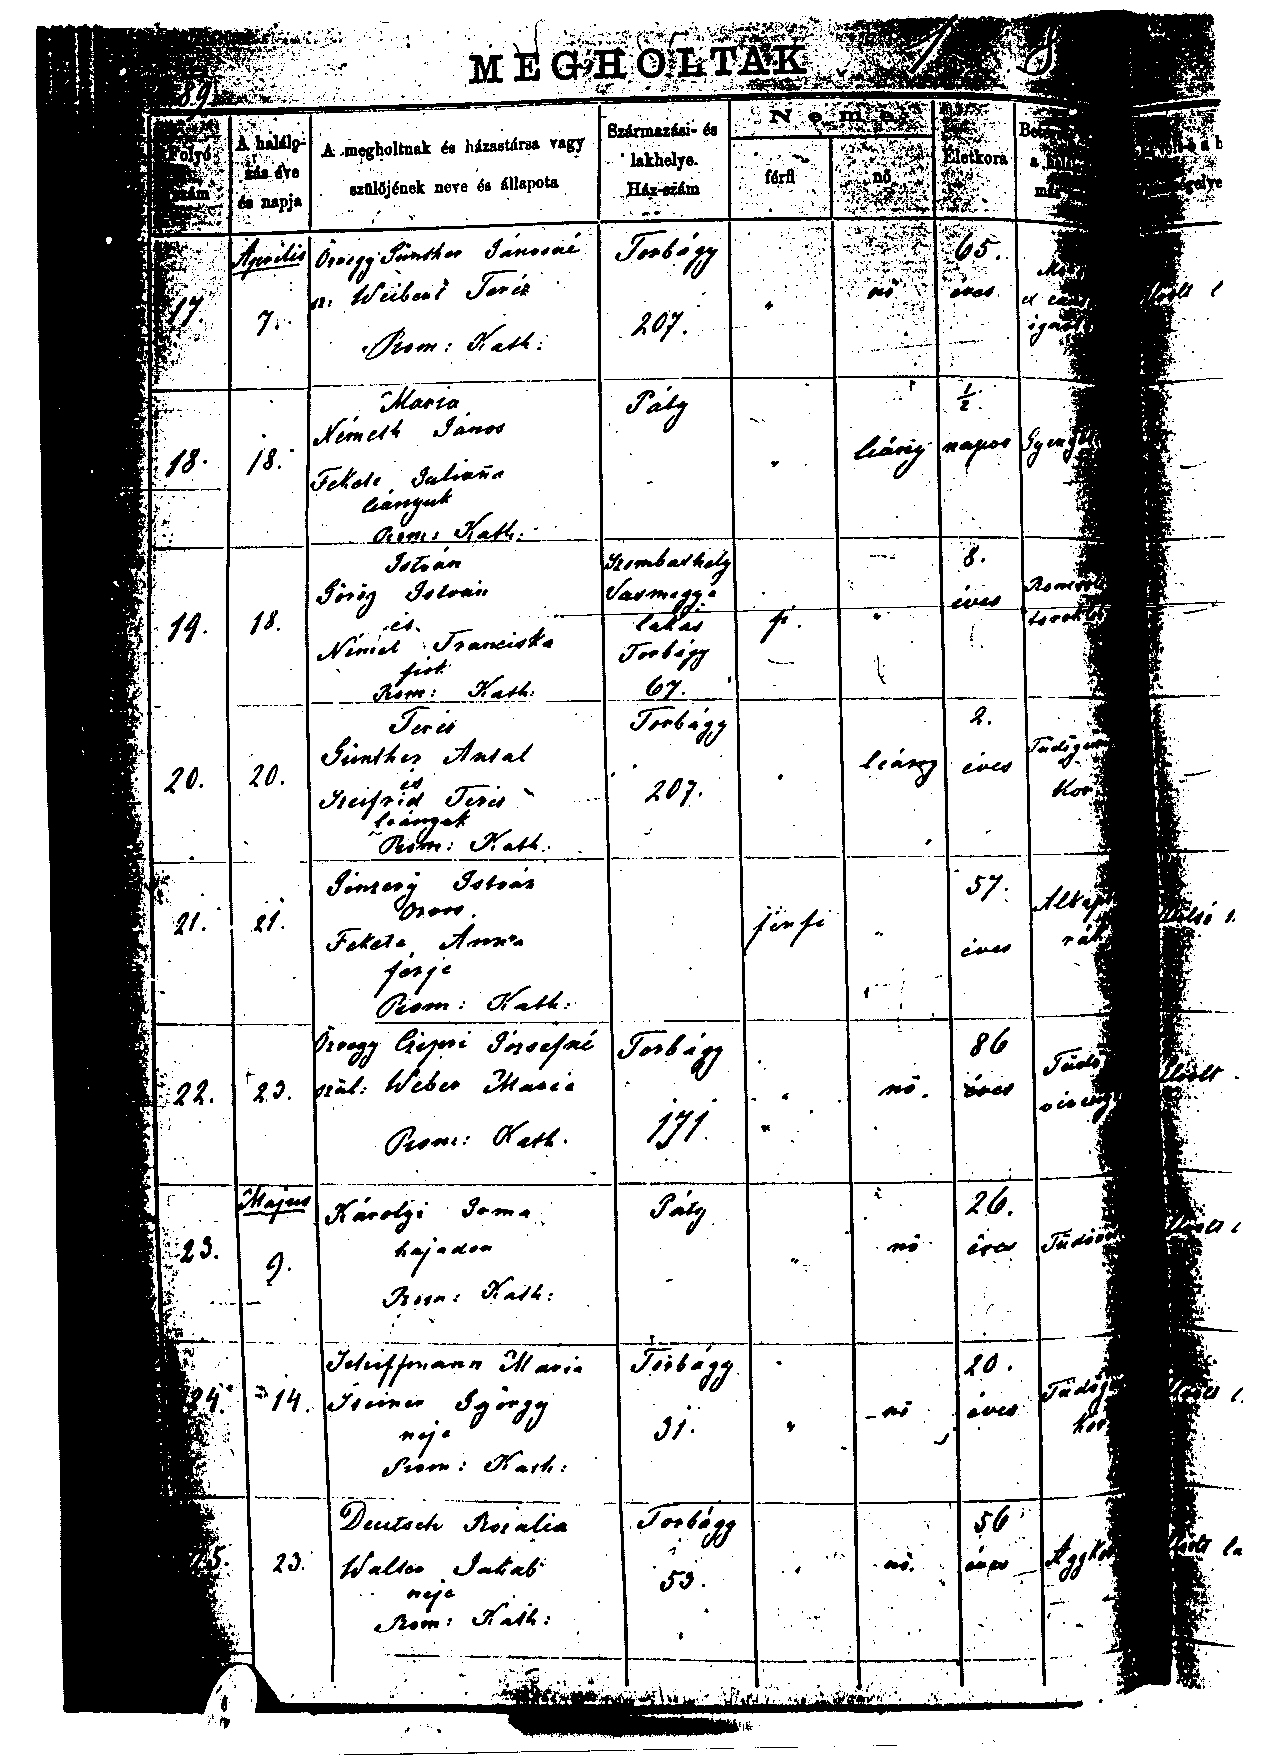 MEGHOLTAK
18
89
Folyó szám
A halálozás éve és napja
A megholtnak és házastársa vagy szülőjének neve és állapota
Származási- és lakhelye. Ház-szám
Neme
férfi
nő
Életkora
17.
Április
7.
Özvegy Günther Jánosné
sz: Weibent Teréz
Rom: Kath:
Torbágy
207.
"
nő
65.
éves
18.
18.
Maria
Németh János
Fekete Juliaña
leányuk
Rom: Kath:
Páty
"
leány
1/2
napos
19.
18.
István
Görög István
és
Német Franciska
fiok
Rom: Kath:
Szombathely
Vasmegye
lakás
Torbágy
67.
f.
"
8.
éves
20.
20.
Teréz
Günther Antal
és
Szeifrid Teréz
leányuk
Rom: Kath:
Torbágy
207.
leány
2.
éves
21.
21.
István
Fekete Anna
férje
Rom: Kath:
férfi
"
57.
éves
22.
23.
Özvegy Józsefné
szül: Weber Maria
Rom: Kath.
Torbágy
171.
"
nő.
86
éves
23.
Majus
9.
Károlyi Irma
hajadon
Rom: Kath:
Páty
"
nő
26.
éves
24.
14.
Schiffmann Maria
Steiner György
neje
Rom: Kath:
Torbágy
31.
"
nő
20.
éves
25.
23.
Deutsch Rozalia
Walter Jakab
neje
Rom: Kath:
Torbágy
53.
"
nő.
56
éves